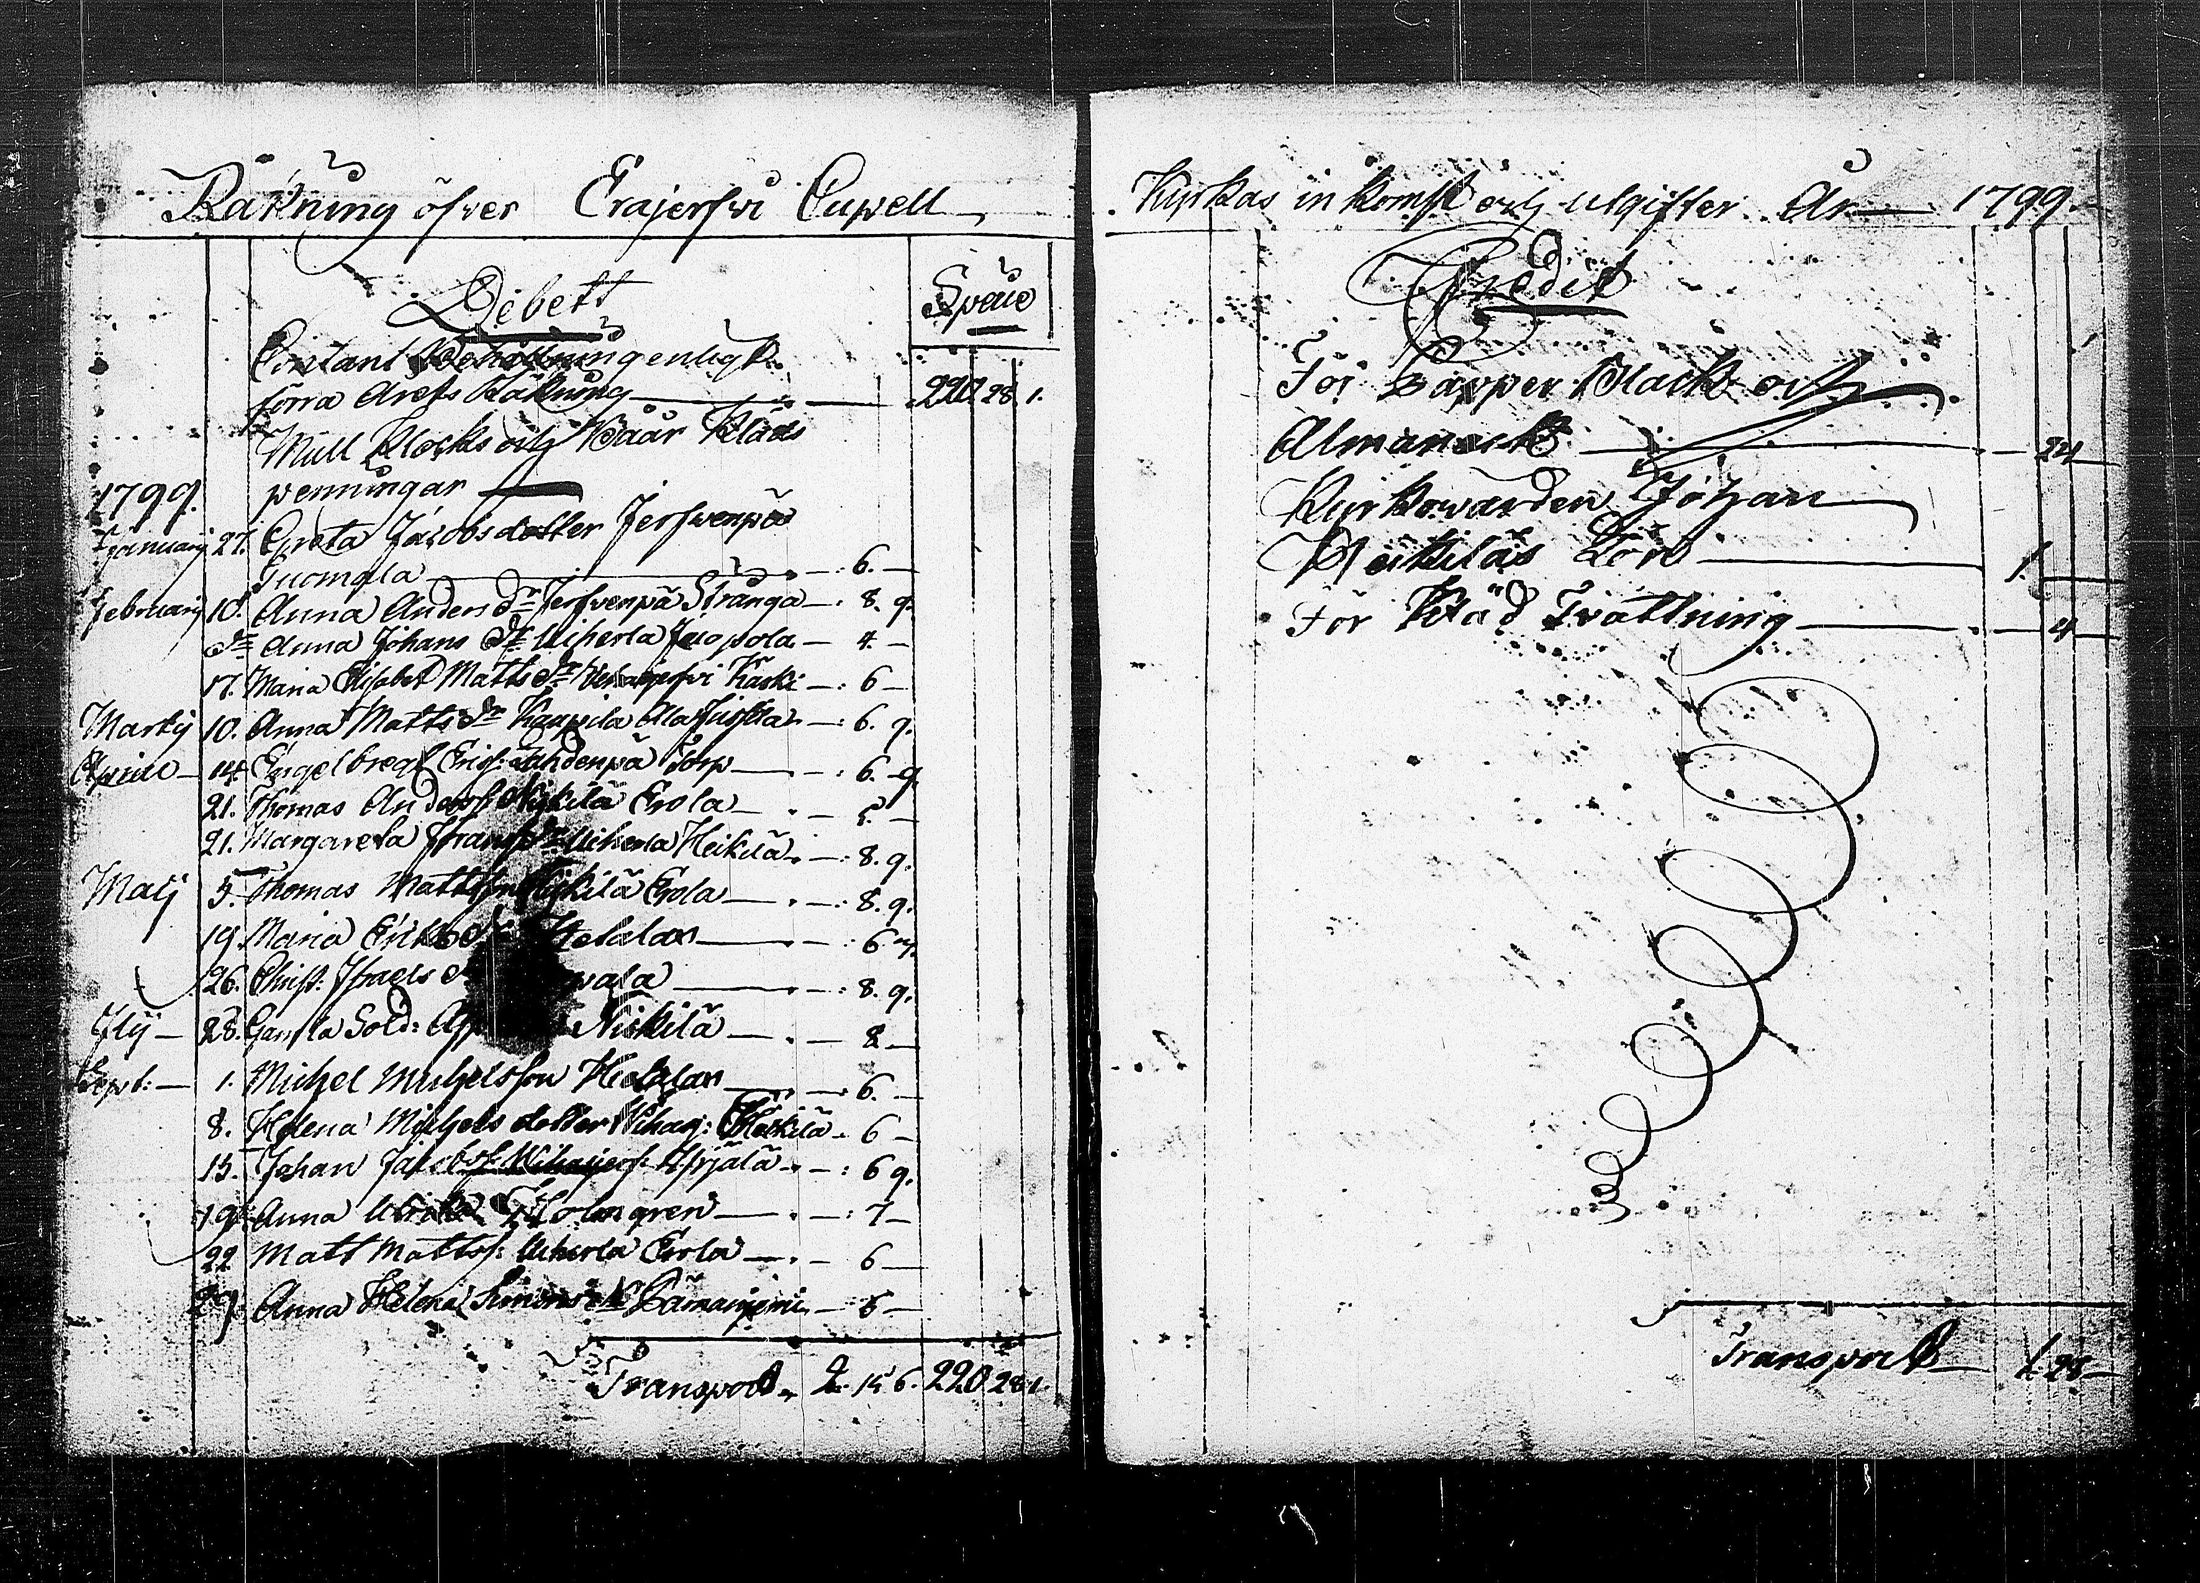 Räkning öfver Erajerfwi Capell
Debett
Speue
Contant Behållning enligt
förra Årets Räkning 220. 28. 1.
Mull Klocks och Båår Kläds
penningar
1799.
Januarij 27. Greta Jacobs dotter Jerfwenpä
Tuomola 6. —
Februarij 10. Anna Anders dr Jerfvenpä Strånga 8. 9.
dr Anna Johans dr Uiherla Juopola 4. —
17. Maria Elisabet Matts dr Vihajerfvi Kaski 6 —
Martij 10. Anna Matts dr Kaupila Ala Jussila 6. 9.
Aprill 14 Engelbregt Erics: Lahdenpä Torp 6. 9.
21. Thomas Anderss: Nijkilä Erola
21. Margareta Frans dr Uiherla Heikilä 8. 9.
Maij 5. Thomas Mattsson Nijkilä Erola 8. 9.
19. Maria Eriks dr Hetalan 6
26. Christ: Israels wala 8. 9.
Julij 28. Gamla Sold: Niskilä 8 —
Sept: 1. Michel Michelsson Hetalan 6. —
8. Helena Michels dotter Wihaj: Heikilä 6 —
15. Johan Jacobs: Wihajerf: Yrjälä 6 9.
19. Anna Ulrika Holmgren 7 —
22 Matt Matts: Uiherla Erola 6 —
29. Anna Helena Simons dr Sämaniemi 6 —
Transport 2. 15 6. 220. 28. 1.
Kyrkas inkomst och utgifter År 1799.
Credit
För Papper Black och
Almanack 24
Kyrkowärden Johan
Heikiläs Lön 1.
För Kläd Tvättning 4
Transport 1. 28 —